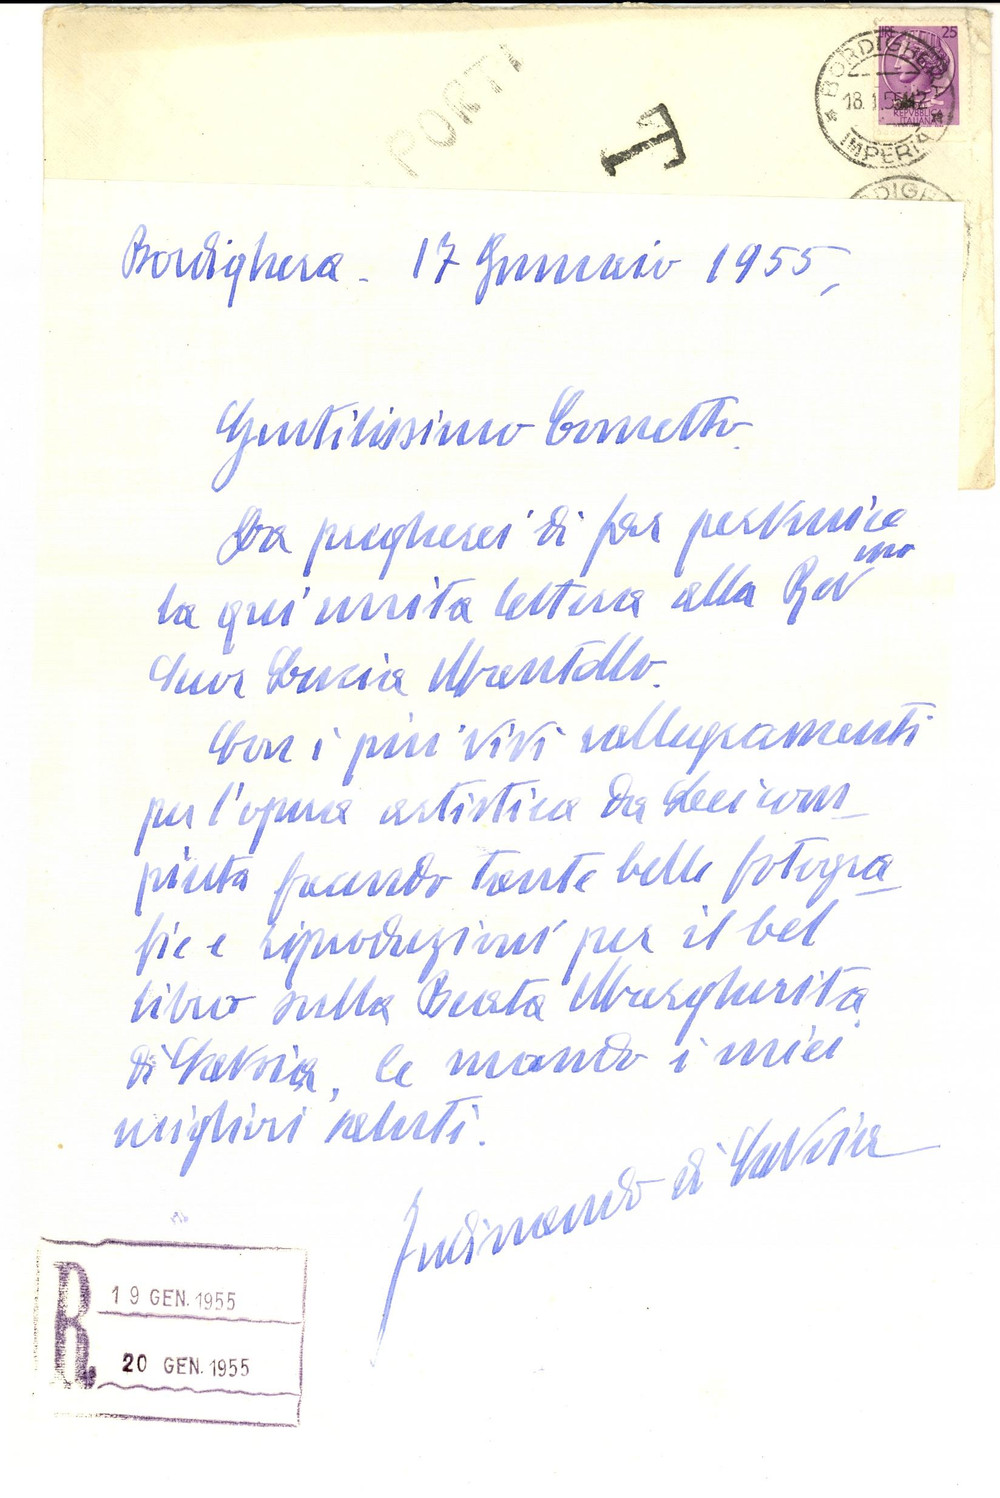 PORTI
T
LIRE 25
REPVBBLICA
ITALIANA
BORDIGHERA
18.1.55
IMPERIA
BORDIGHERA
Bordighera - 17 Gennaio 1955,
Gentilissimo Cometto.
La pregherei di far pervenire
la qui unita lettera alla Rev ma
Suor Lucia Mantello.
Con i più vivi rallegramenti
per l'opera artistica da Lei com-
piuta facendo tante belle fotogra-
fie e riproduzioni per il bel
libro sulla Beata Margherita
di Savoia, le mando i miei
migliori saluti.
Ferdinando di Savoia
R.
19 GEN. 1955
20 GEN. 1955